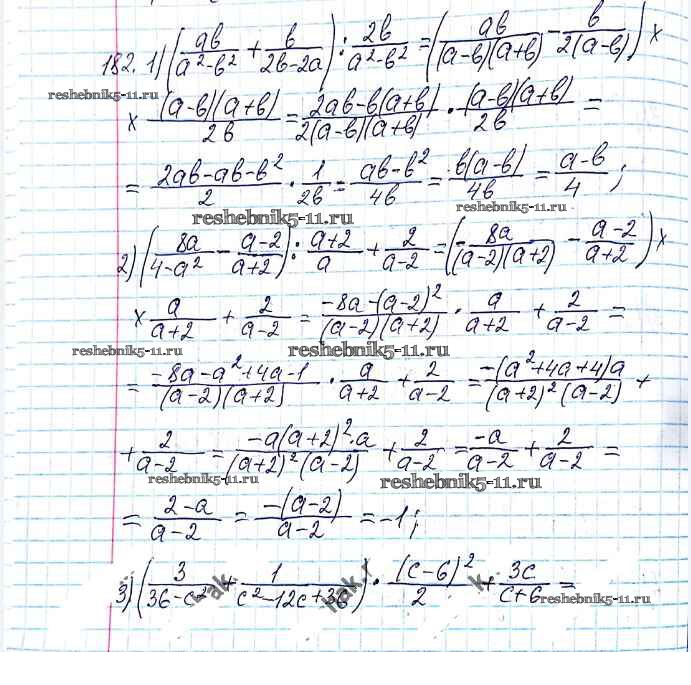 182. 1) (ab/(a²-b²) + b/(2b-2a)) : 2b/(a²-b²) = (ab/((a-b)(a+b)) - b/(2(a-b))) ×
reshebnik5-11.ru
× ((a-b)(a+b))/2b = (2ab-b(a+b))/(2(a-b)(a+b)) · ((a-b)(a+b))/2b =
= (2ab-ab-b²)/2 · 1/2b = (ab-b²)/4b = b(a-b)/4b = (a-b)/4 ;
reshebnik5-11.ru reshebnik5-11.ru
2) (8a/(4-a²) - (a-2)/(a+2)) : (a+2)/a + 2/(a-2) = (-8a/((a-2)(a+2)) - (a-2)/(a+2)) ×
× a/(a+2) + 2/(a-2) = (-8a-(a-2)²)/((a-2)(a+2)) · a/(a+2) + 2/(a-2) =
reshebnik5-11.ru reshebnik5-11.ru
= (-8a-a²+4a-1)/((a-2)(a+2)) · a/(a+2) + 2/(a-2) = (-(a²+4a+4)a)/((a+2)²(a-2)) +
+ 2/(a-2) = (-a(a+2)²·a)/((a+2)²(a-2)) + 2/(a-2) = -a/(a-2) + 2/(a-2) =
reshebnik5-11.ru reshebnik5-11.ru
= (2-a)/(a-2) = (-(a-2))/(a-2) = -1;
3) (3/(36-c²) + 1/(c²-12c+36)) · (c-6)²/2 + 3c/(c+6) =
reshebnik5-11.ru